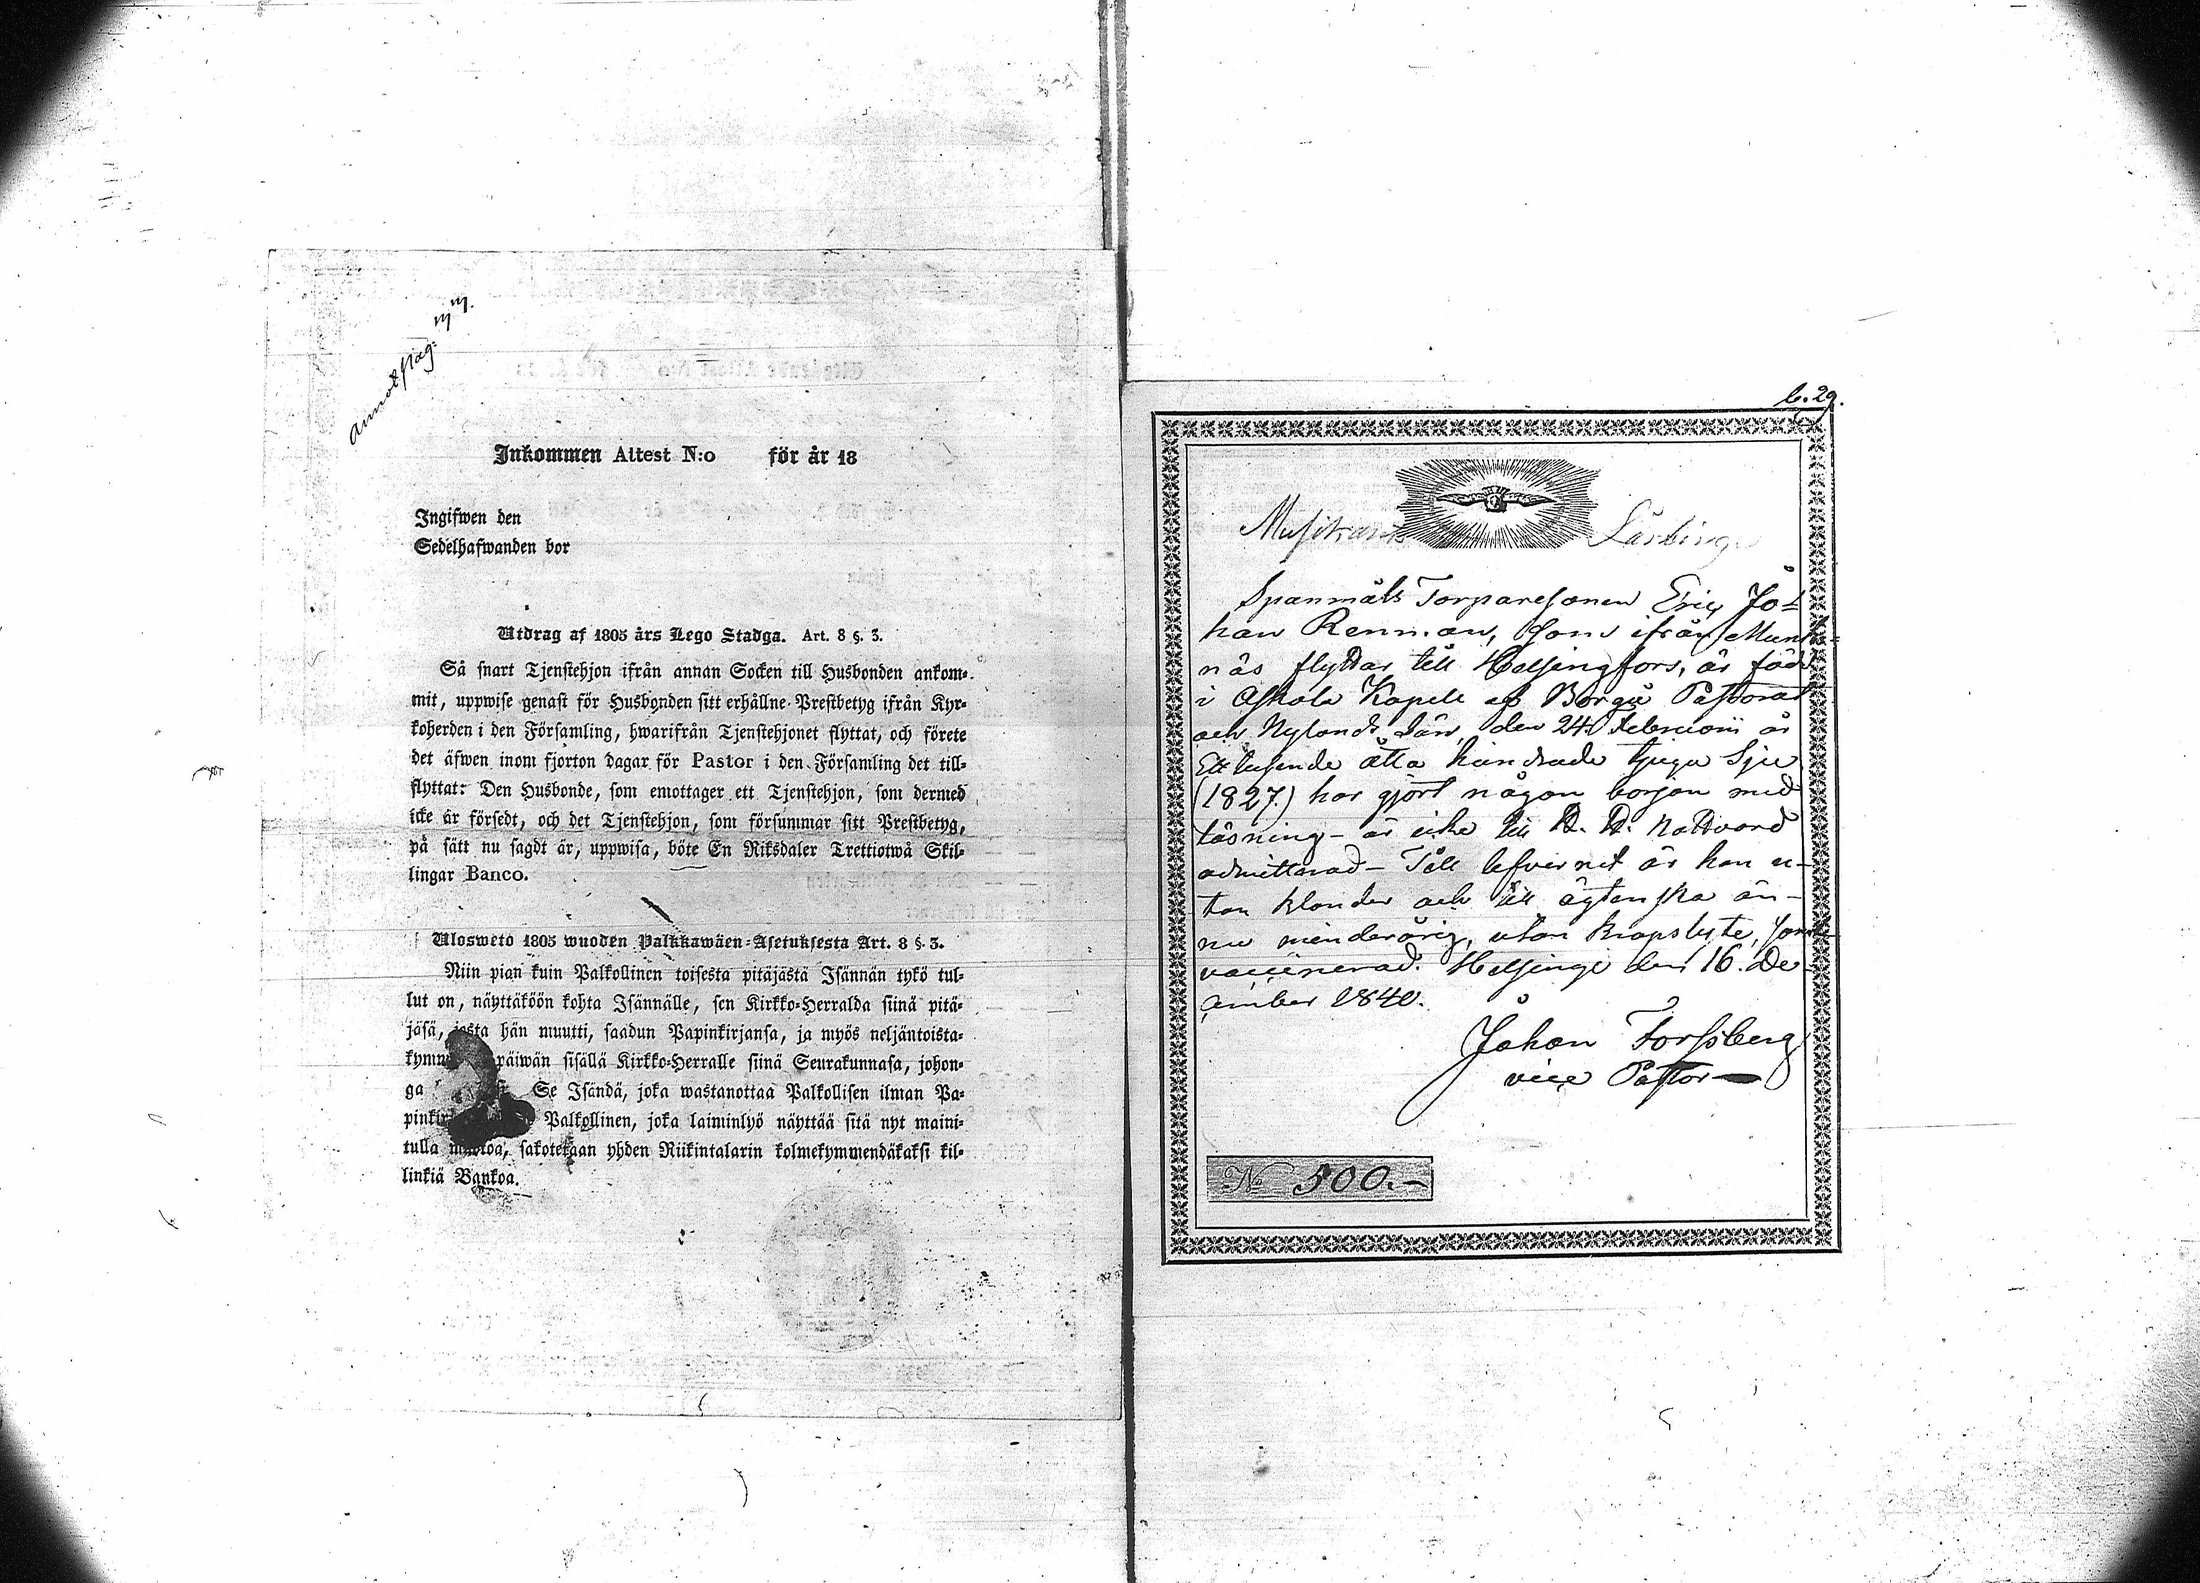 annot pag: m m.
Inkommen Attest N:o för år 18
Ingifwen den
Sedelhafwanden bor
Utdrag af 1805 års Lego Stadga. Art. 8 §. 3.
Så snart Tjenstehjon ifrån annan Socken till Husbonden ankom-
mit, uppwise genast för Husbonden sitt erhållne Prestbetyg ifrån Kyr-
koherden i den Församling, hwarifrån Tjenstehjonet flyttat, och förete
det äfwen inom fjorton dagar för Pastor i den Församling det till-
flyttat: Den Husbonde, som emottager ett Tjenstehjon, som dermed
icke är försedt, och det Tjenstehjon, som försummar sitt Prestbetyg,
på sätt nu sagdt är, uppwisa, böte En Riksdaler Trettiotwå Skil-
lingar Banco.
Ulosweto 1805 wuoden Palkkawäen-Asetuksesta Art. 8 §. 3.
Niin pian kuin Palkollinen toisesta pitäjästä Isännän tykö tul-
lut on, näyttäköön kohta Isännälle, sen Kirkko-Herralda siinä pitä-
jäsä, josta hän muutti, saadun Papinkirjansa, ja myös neljäntoista-
kymm päiwän sisällä Kirkko-Herralle siinä Seurakunnasa, johon-
ga Se Isändä, joka wastanottaa Palkollisen ilman Pa-
pinkir Palkollinen, joka laiminlyö näyttää sitä nyt maini-
tulla muotoa, sakotetaan yhden Riikintalarin kolmekymmendäkaksi kil-
linkiä Bankoa.
b. 29.
Musikant Lärling
Spanmåls Torparesonen Eric Jo-
han Renman, som ifrån Munks-
näs flyttar till Helsingfors, är född
i Askola Kapell af Borgå Pastorat
och Nylands Län, den 24 Februarii år
Ett tusende åtta hundrade tjugu Sju
(1827.) har gjort någon början med
läsning - är icke till H. H. Nattvard
admitterad - Till lefvernet är han u-
tan klander och till ägtenska än-
nu minderårig, utan kropslyte, samt
vaccinerad. Helsinge den 16. De-
cember 1840.
Johan Forssberg
vice Pastor
No 500.-